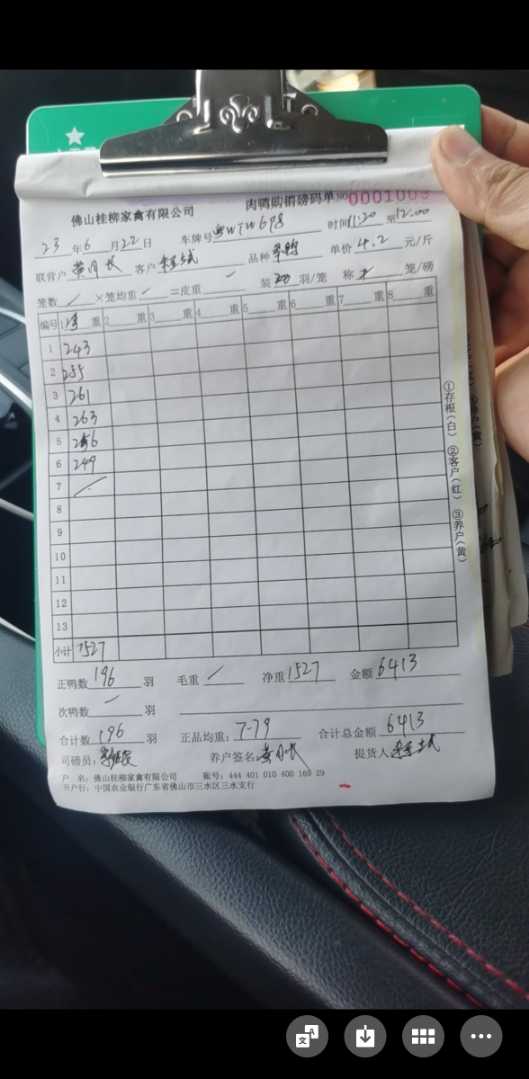 佛山桂柳家禽有限公司 肉鸭购销磅码单 №0001003
23年6月22日 车牌号粤WTW698 时间11:20至12:00
联营户 客户 品种 单价4.2元/斤
笼数／×笼均重／=皮重／ 装20羽/笼 称 笼/磅
编号 1 净重 2 重 3 重 4 重 5 重 6 重 7 重 8 重
1 243
2 255
3 261
4 263
5 256
6 249
7 ／
8
9
10
11
12
13
小计 1527
①存根(白) ②客户(红) ③养户(黄)
正鸭数196羽 毛重／ 净重1527 金额6413
次鸭数／羽
合计数196羽 正品均重:7.79 合计总金额6413
司磅员: 养户签名: 提货人
户 名:佛山桂柳家禽有限公司 账号:444 401 010 400 169 29
开户行:中国农业银行广东省佛山市三水区三水支行